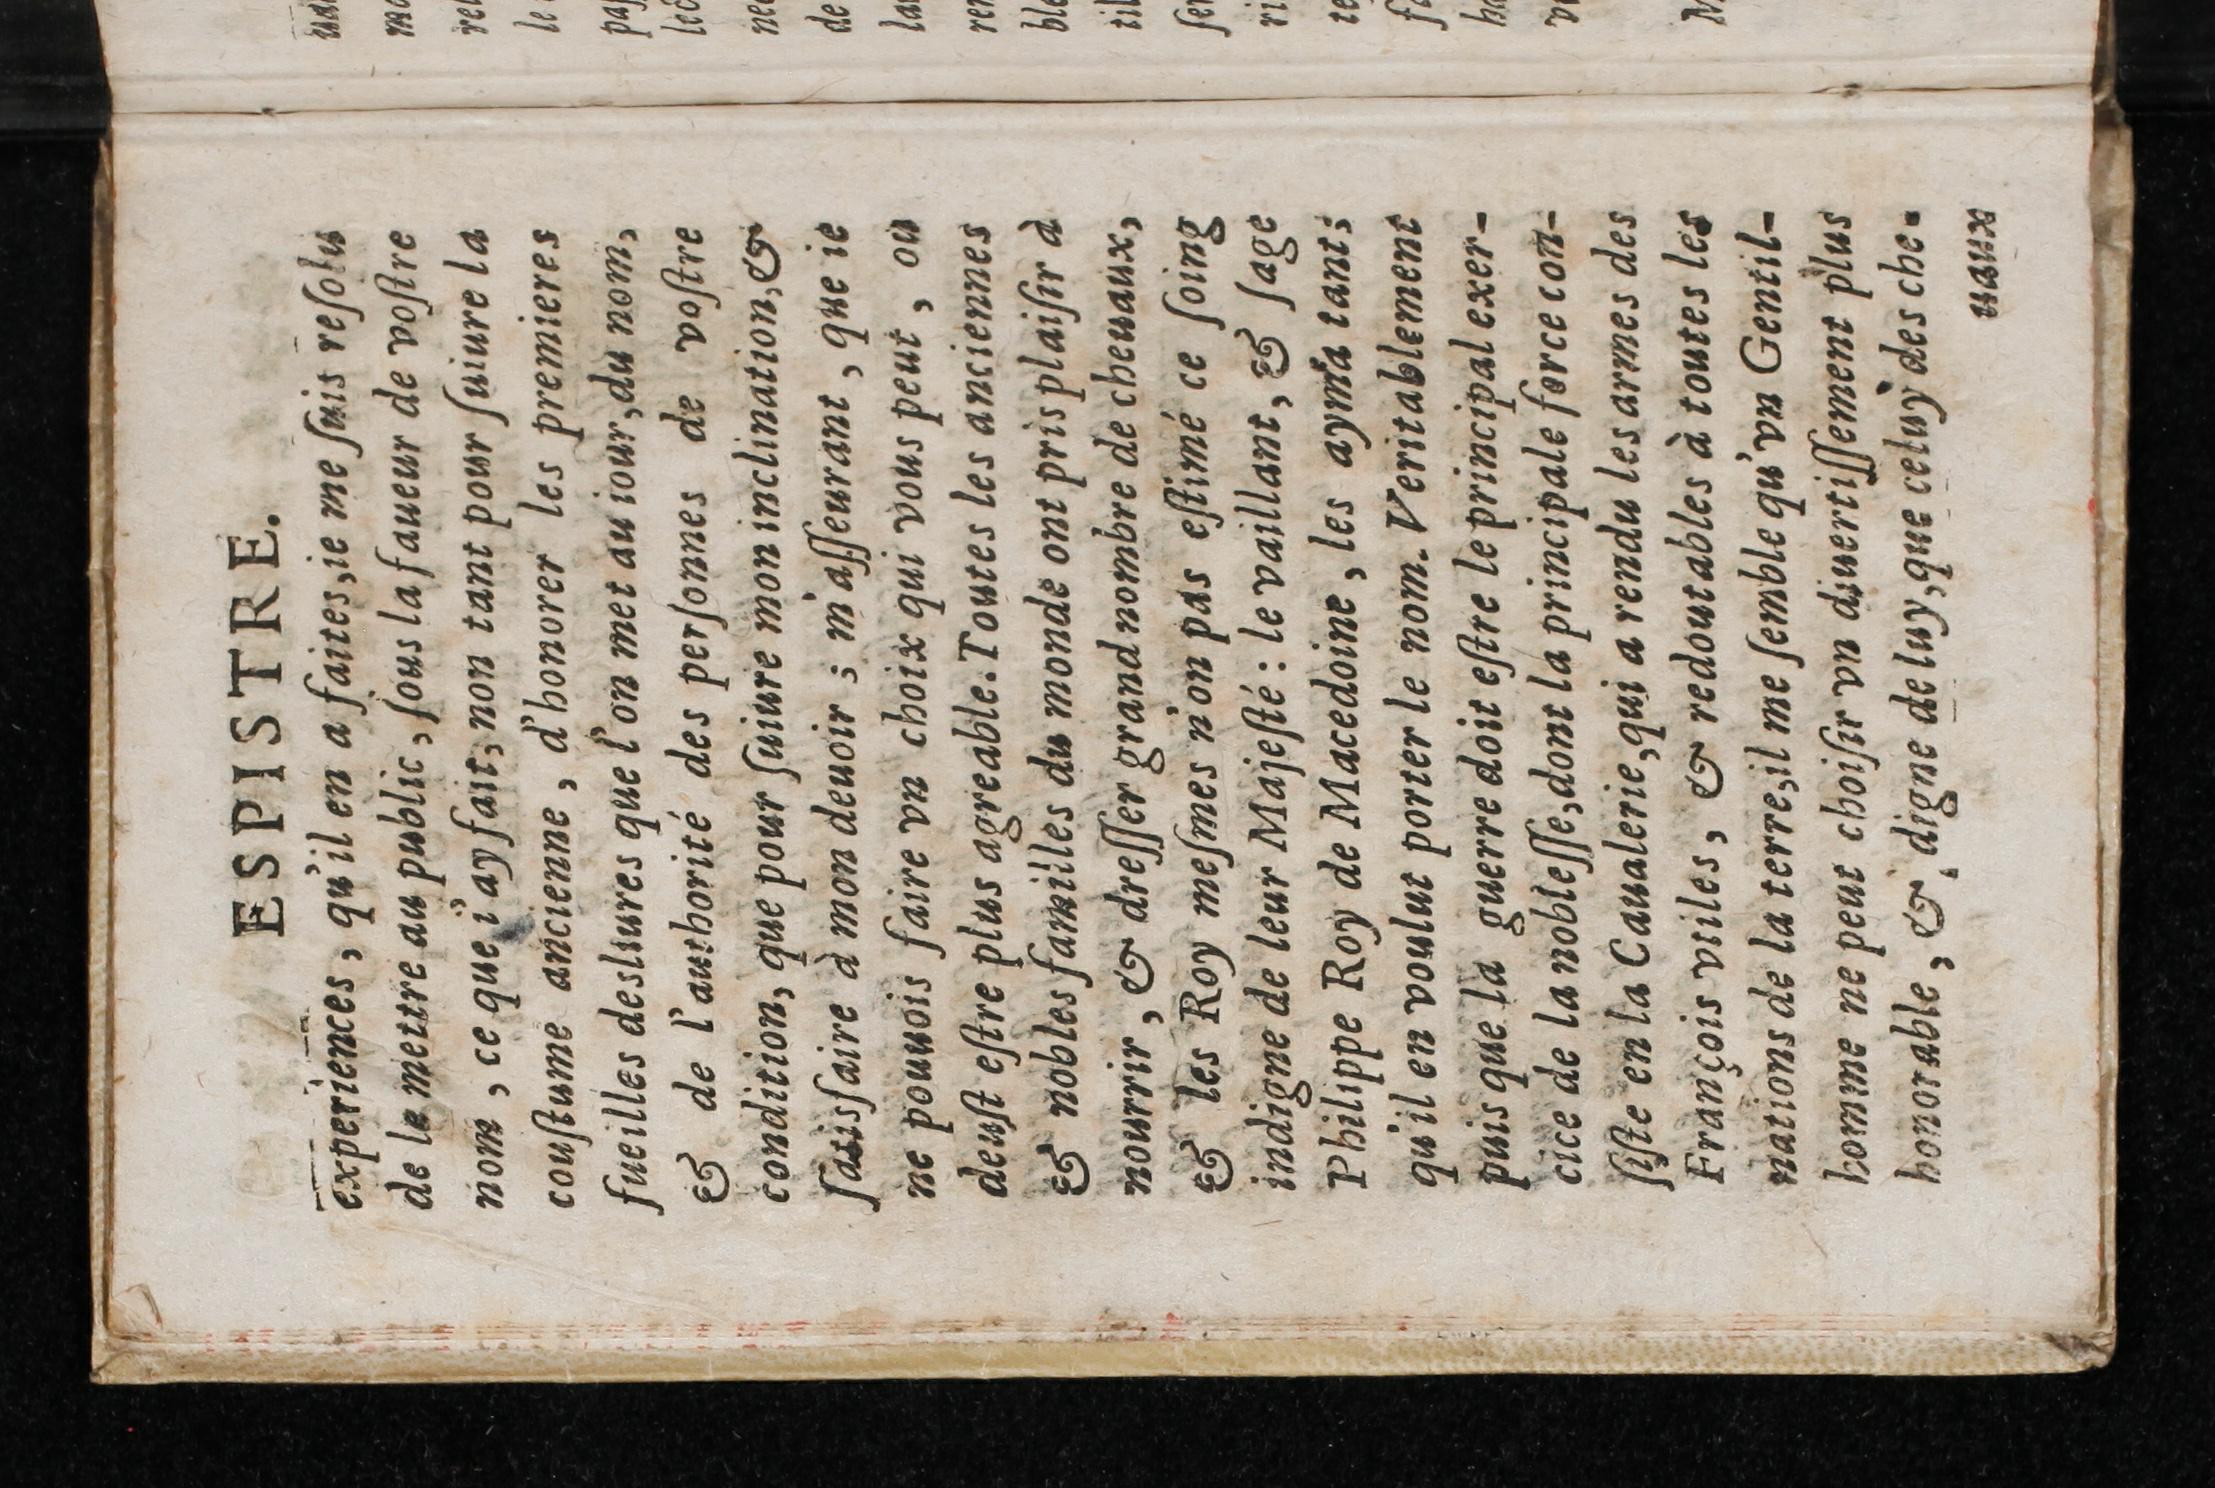 ESPISTRE.
experiences, qu'il en a faites, ie me ſuis reſolu
de le mettre au public, ſous la faueur de voſtre
nom, ce que i'ay fait, non tant pour ſuiure la
couſtume ancienne, d'honorer les premieres
fueilles des liures que l'on met au iour, du nom,
& de l'authorité des perſonnes de voſtre
condition, que pour ſuiure mon inclination, &
ſatisfaire à mon deuoir; m'aſſeurant, que ie
ne pouuois faire vn choix qui vous peut, ou
deuſt eſtre plus agreable. Toutes les anciennes
& nobles familles du monde ont pris plaiſir à
nourrir, & dreſſer grand nombre de cheuaux,
& les Roy meſmes n'on pas eſtimé ce ſoing
indigne de leur Majeſté: le vaillant, & ſage
Philippe Roy de Macedoine, les ayma tant;
qu'il en voulut porter le nom. Veritablement
puis que la guerre doit eſtre le principal exer-
cice de la nobleſſe, dont la principale force con-
ſiſte en la Caualerie, qui a rendu les armes des
François vtiles, & redoutables à toutes les
nations de la terre, il me ſemble qu'vn Gentil-
homme ne peut choiſir vn diuertiſſement plus
honorable, & digne de luy, que celuy des che-
uaux